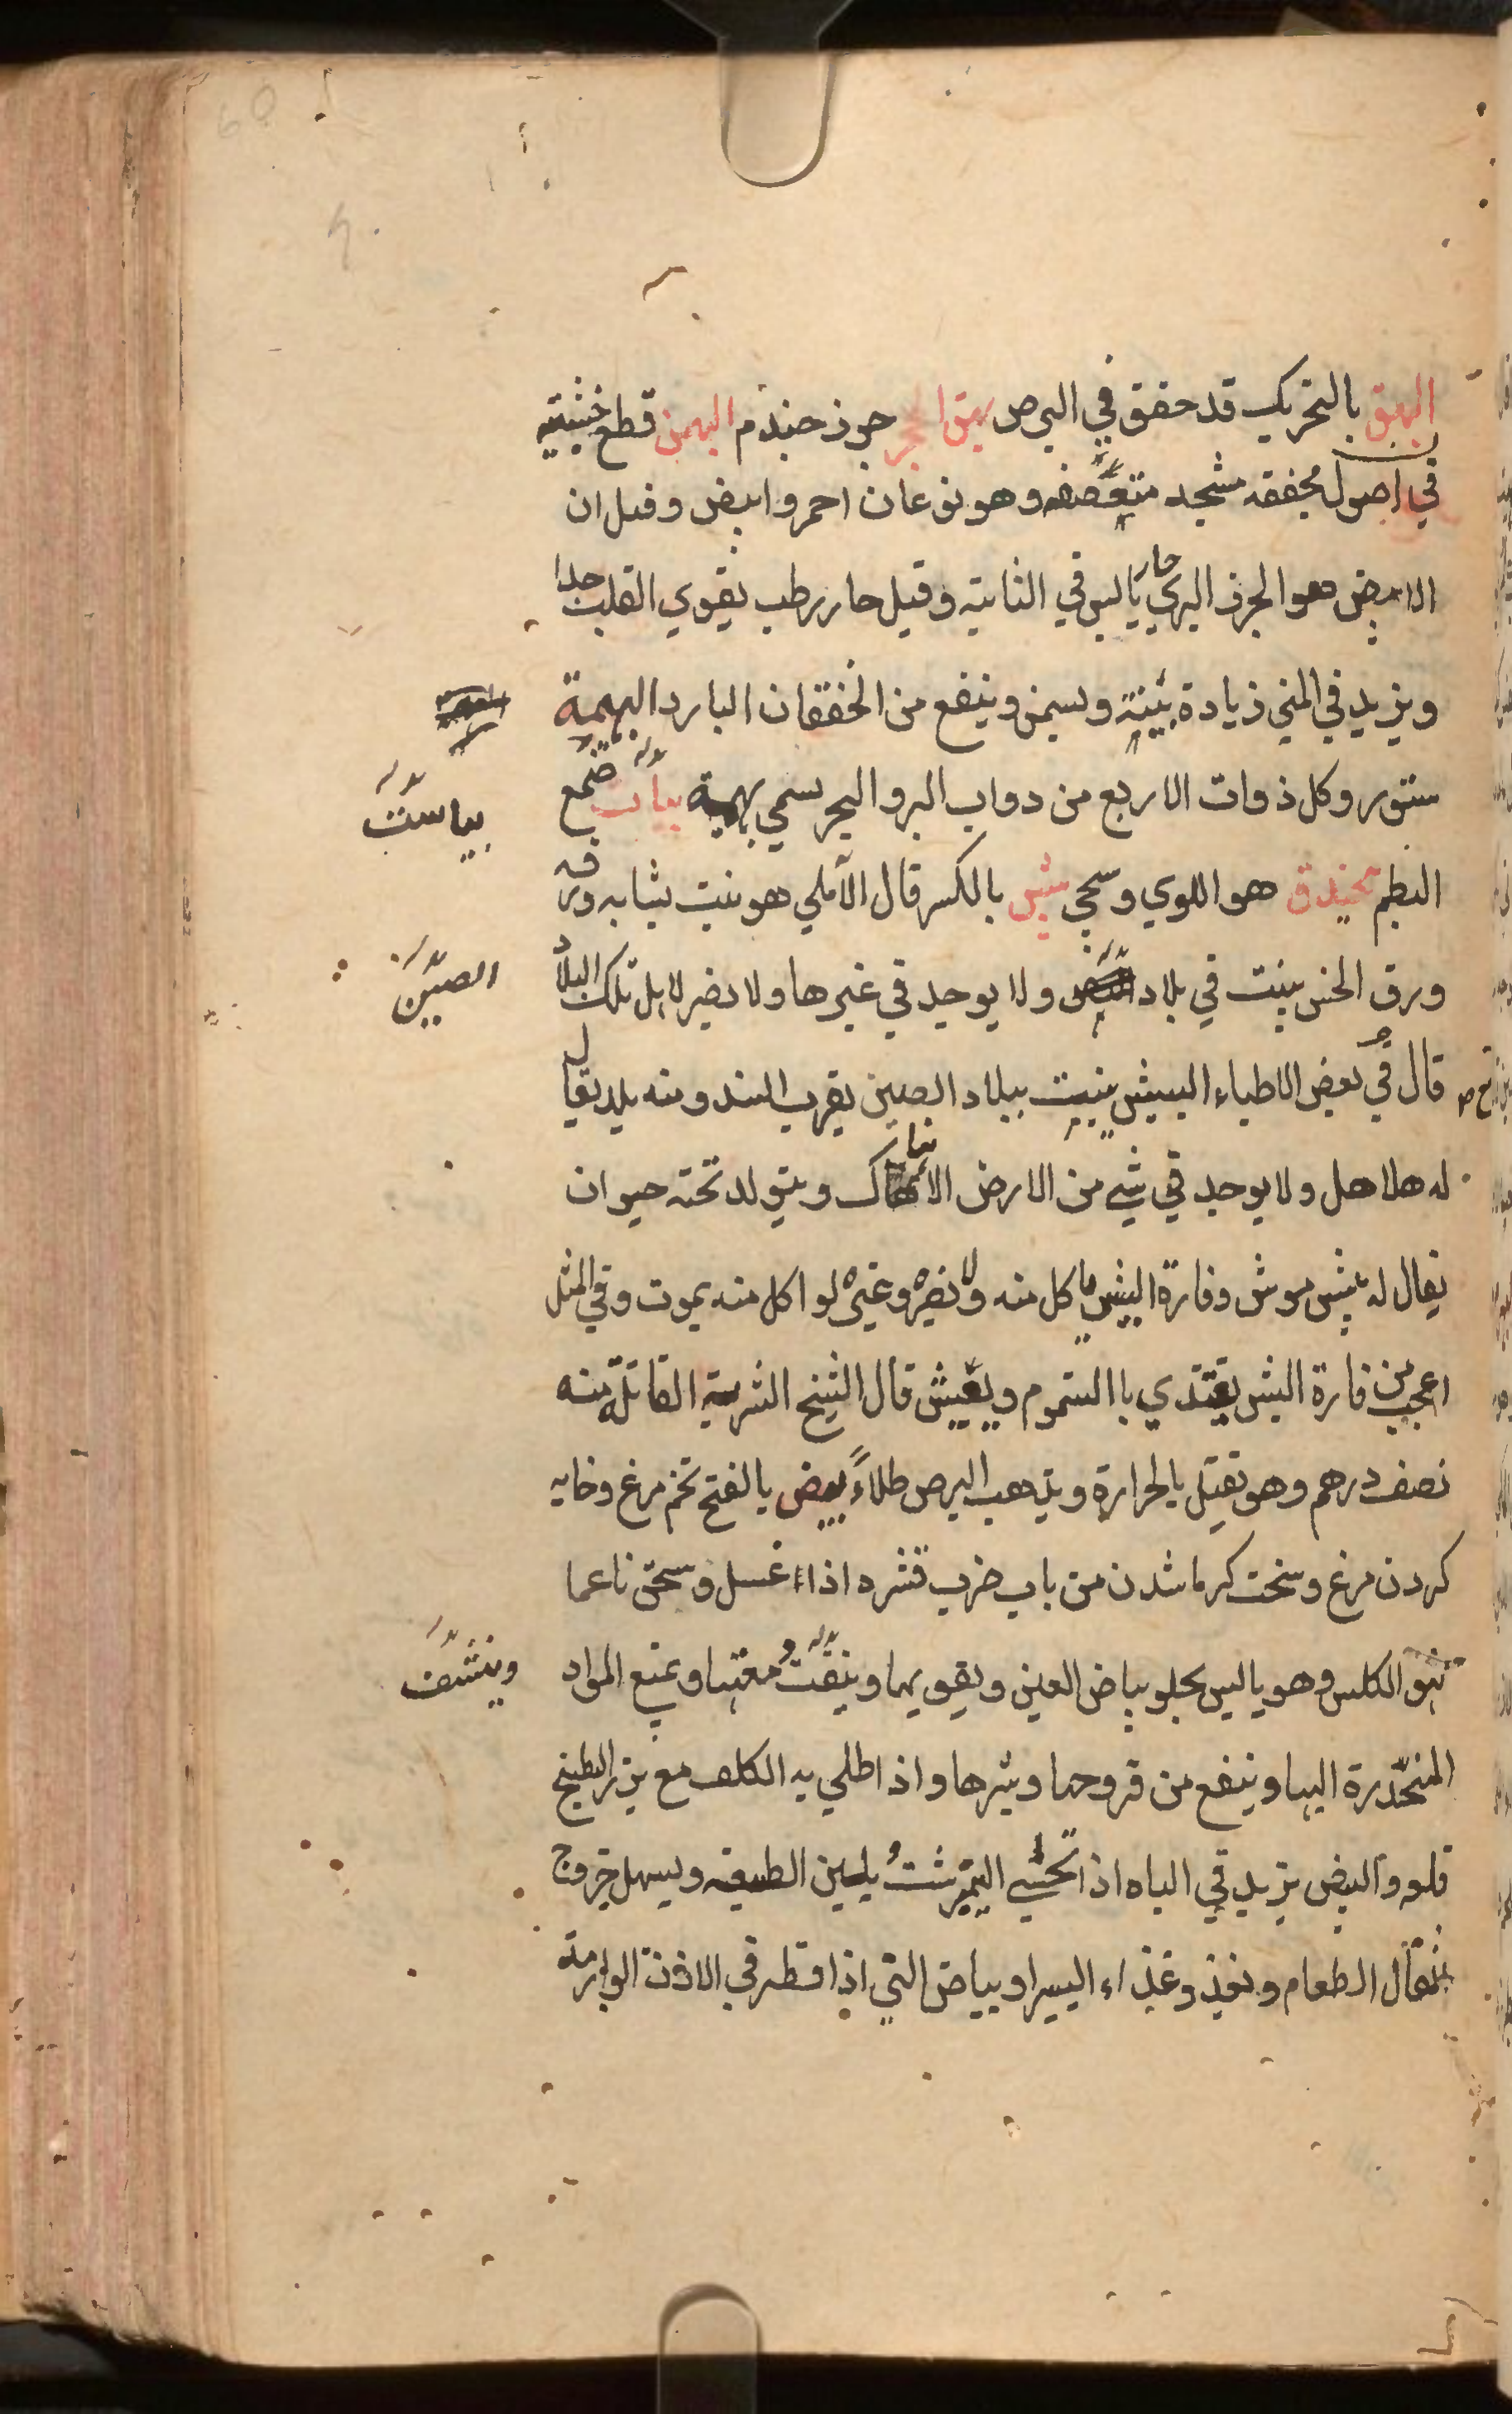 البهق بالتحريك قد حقق في البرص بهق الحجر جوز جندم البهمن قطع خشبية
في اصول مجففة متشجة متغضفة وهو نوعان احمر وابيض وقيل ان
الابيض هو الجزر البري حار يابس في الثانية وقيل حار رطب يقوي القلب جدا
ويزيد في المني زيادة بينة ويسمن وينفع من الخفقان البارد البهيمة
ستور وكل ذوات الاربع من دواب البر والبحر يسمي بهيمة بياست صمغ
بياست
البطم هو اللوي وسيجي بيش بالكسر قال الآملي هو نبت يشابه ورقه
ورق الخس ينبت في بلاد ولا يوجد في غيرها ولا يضر لاهل تلك البلاد
الصين
قال في بعض الاطباء البيش ينبت ببلاد الصين بقرب السند ومنه بلد يقال
له هلاهل ولا يوجد في شيء من الارض الا هناك ويتولد تحته حيوان
يقال له بيش موش وفارة البيش ياكل منه ولا يضره وغيره لو اكل منه يموت وفي المثل
اعجب من فارة البيش يغتذي باالسموم ويعيش قال الشيخ الشربة القاتلة منه
نصف درهم وهو يقتل بالحرارة ويذهب البرص طلاءً بيض بالفتح تخم مرغ وخايه
كردن مرغ وسخت كرما شدن من باب ضرب قشره اذا غسل وسحق ناعما
الكلس وهو يابس يجلو بياض العين ويقويها وينقت ويمنع المواد
وينشف
المنحدرة اليها وينفع من قروحها وبثرها واذا طلي به الكلف مع بزر البطيخ
قلعه والبيض يزيد في الباه اذا تحسي النيمبرشت يلين الطبيعة ويسهل خروج
الطعام وغذاء اليسير او بياض الني اذا قطر في الاذن الوارمة